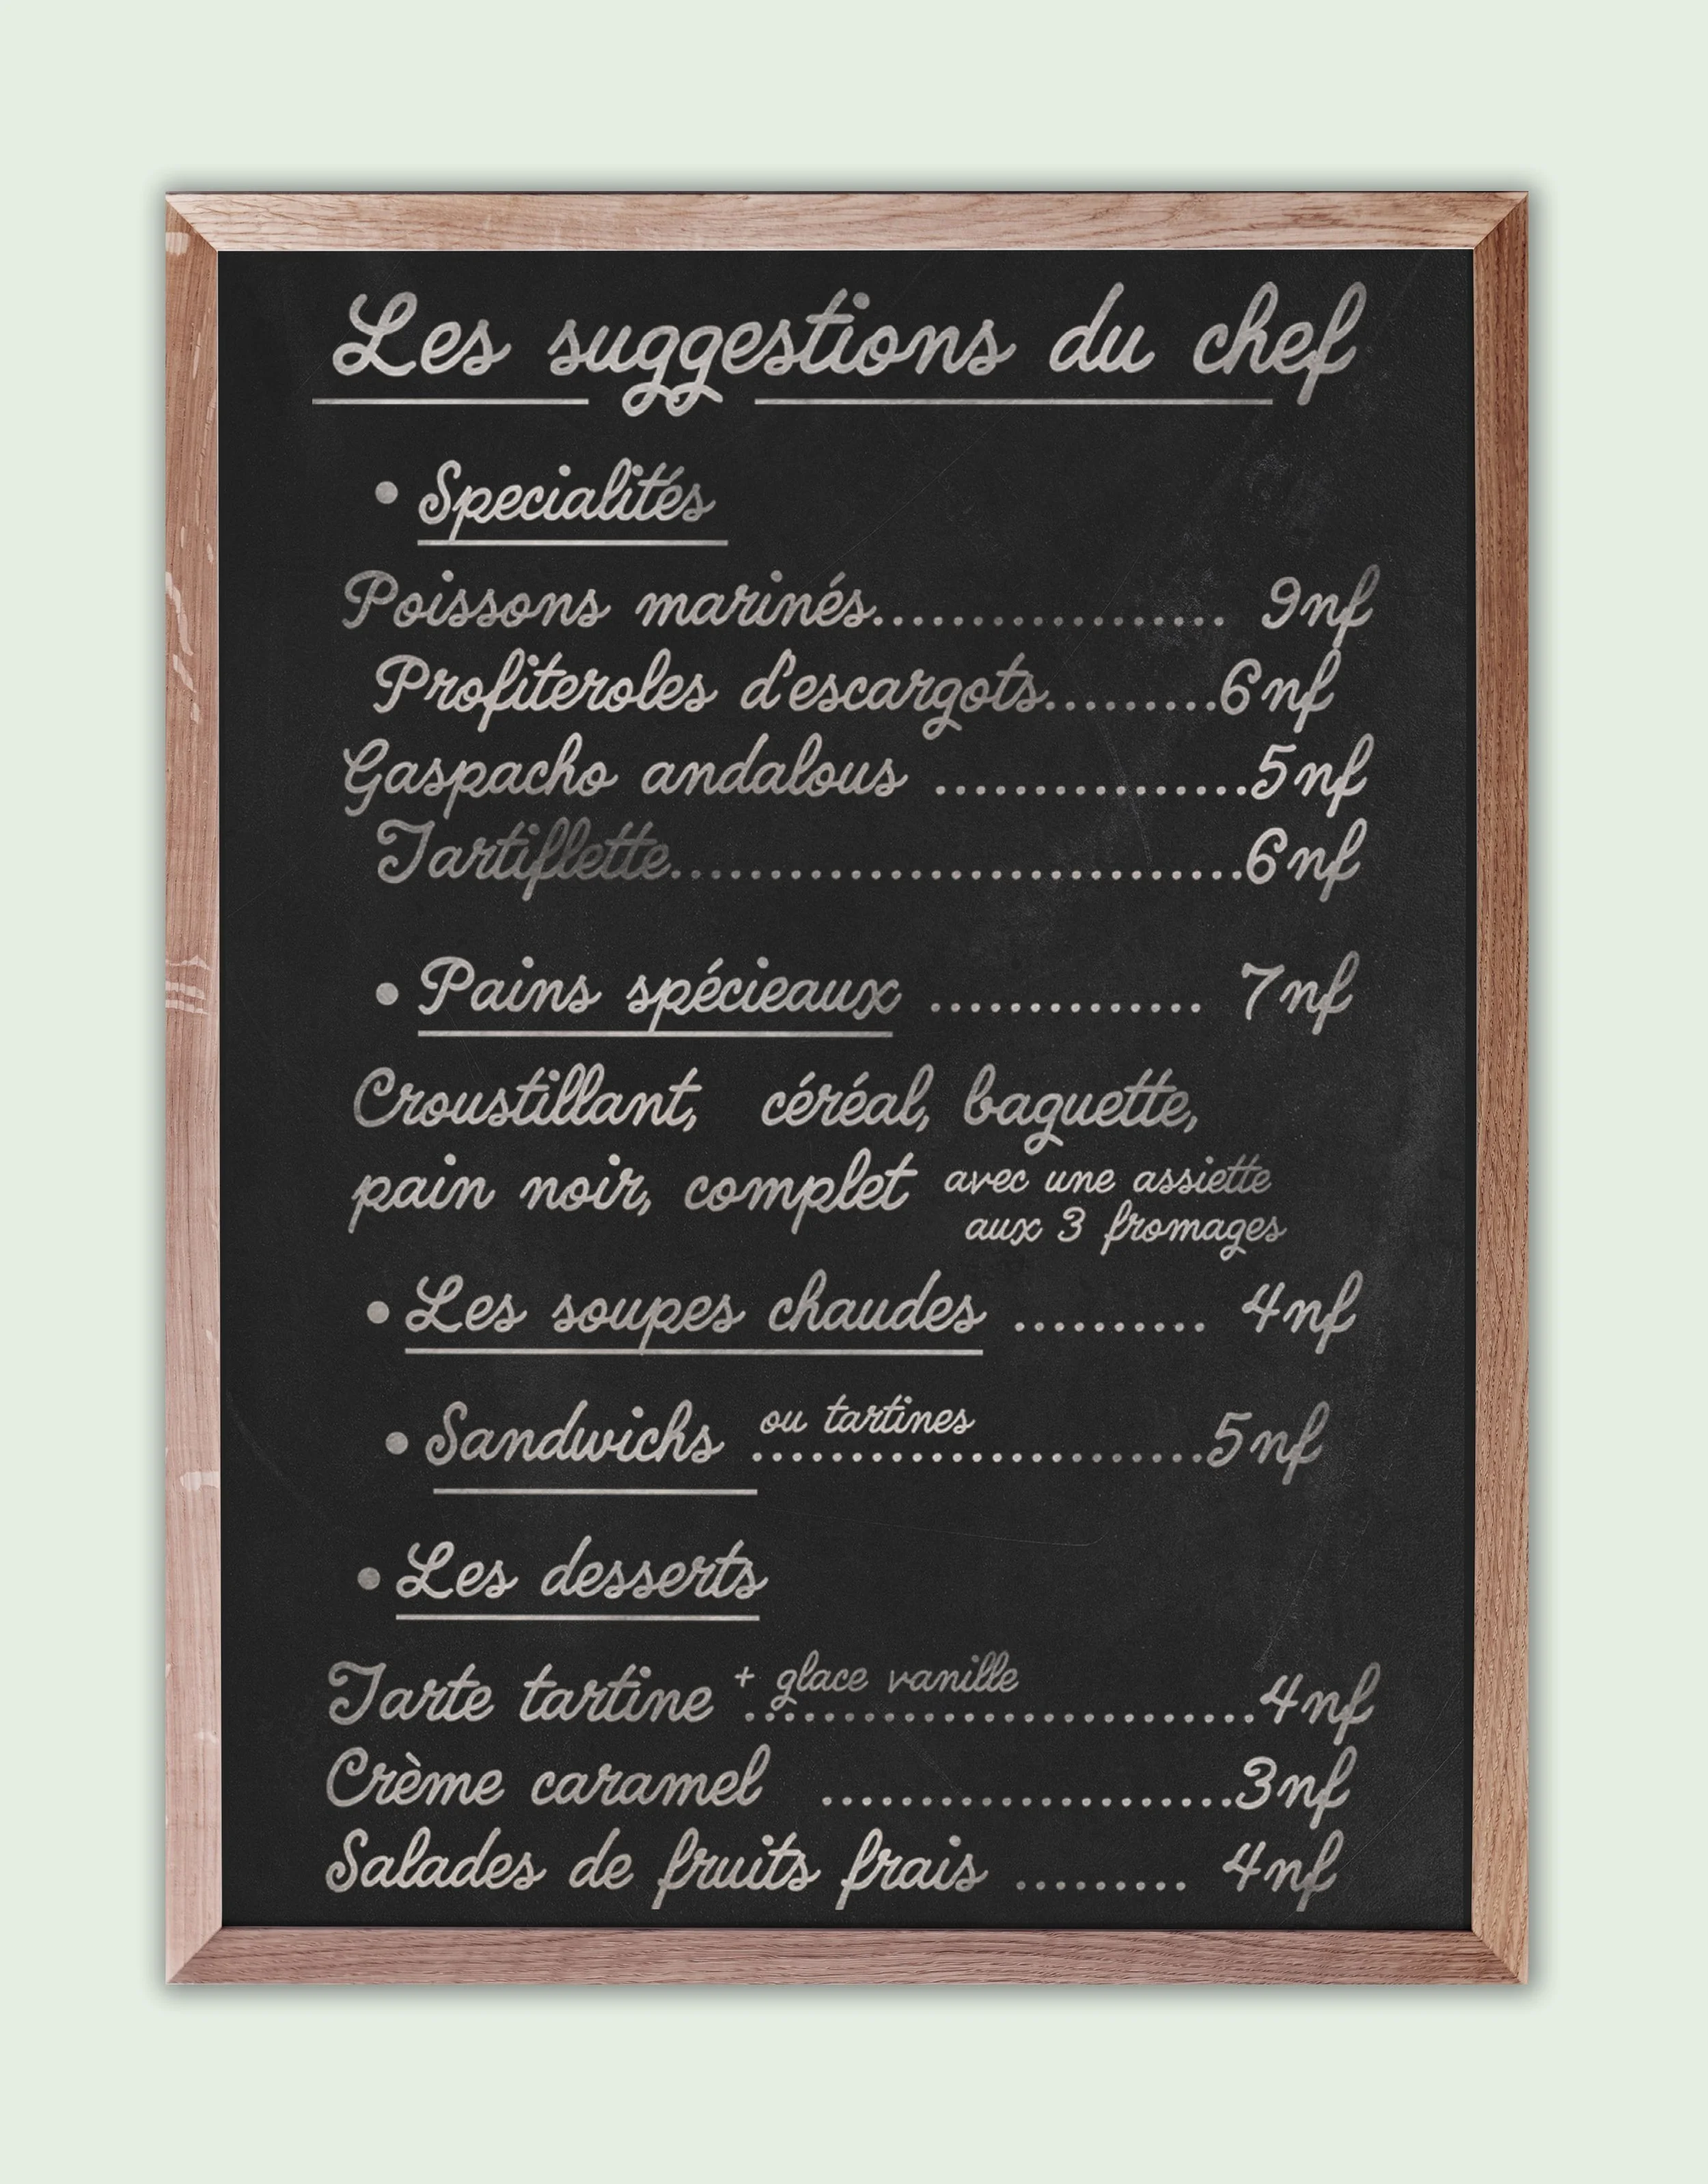 Les suggestions du chef
• Specialités
Poissons marinés.................. 9nf
Profiteroles d'escargots.........6nf
Gaspacho andalous ................5nf
Tartiflette.............................6nf
• Pains spécieaux .............. 7nf
Croustillant, céréal, baguette,
pain noir, complet avec une assiette
aux 3 fromages
• Les soupes chaudes .......... 4nf
• Sandwichs ou tartines .......................5nf
• Les desserts
Tarte tartine + glace vanille ..........................4nf
Crème caramel .....................3nf
Salades de fruits frais ......... 4nf